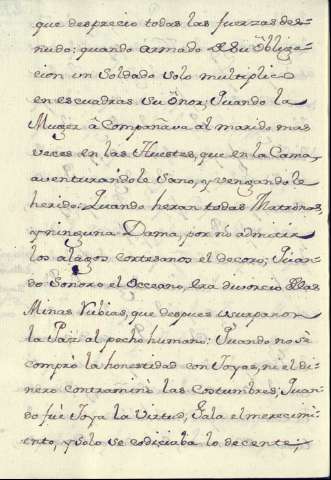 que desprecio todas las fuerzas des-
nudo: quando armado de su obliga-
cion un Soldado solo multiplico
en escuadras su ônor; Quando la
Muger â Compañava al marido mas
veces en las Huestes, que en la Cama,
aventurandole sano, y vengandole
herido: Quando heran todas Matronas,
y ninguna Dama, por nó admitir
los alagos cortesanos el decoro; Quan-
do Sonoro el Occeano, era divorcio de las
Minas rubias, que despues usurparon
la Paz al pecho humano: Quando no se
compró la honestidad con Joyas, ni el di-
nero contraminó las Costumbres; Quan-
do fué Joya la Virtud, Gala el mereci-
ento, y solo se codiciaba lo decente,